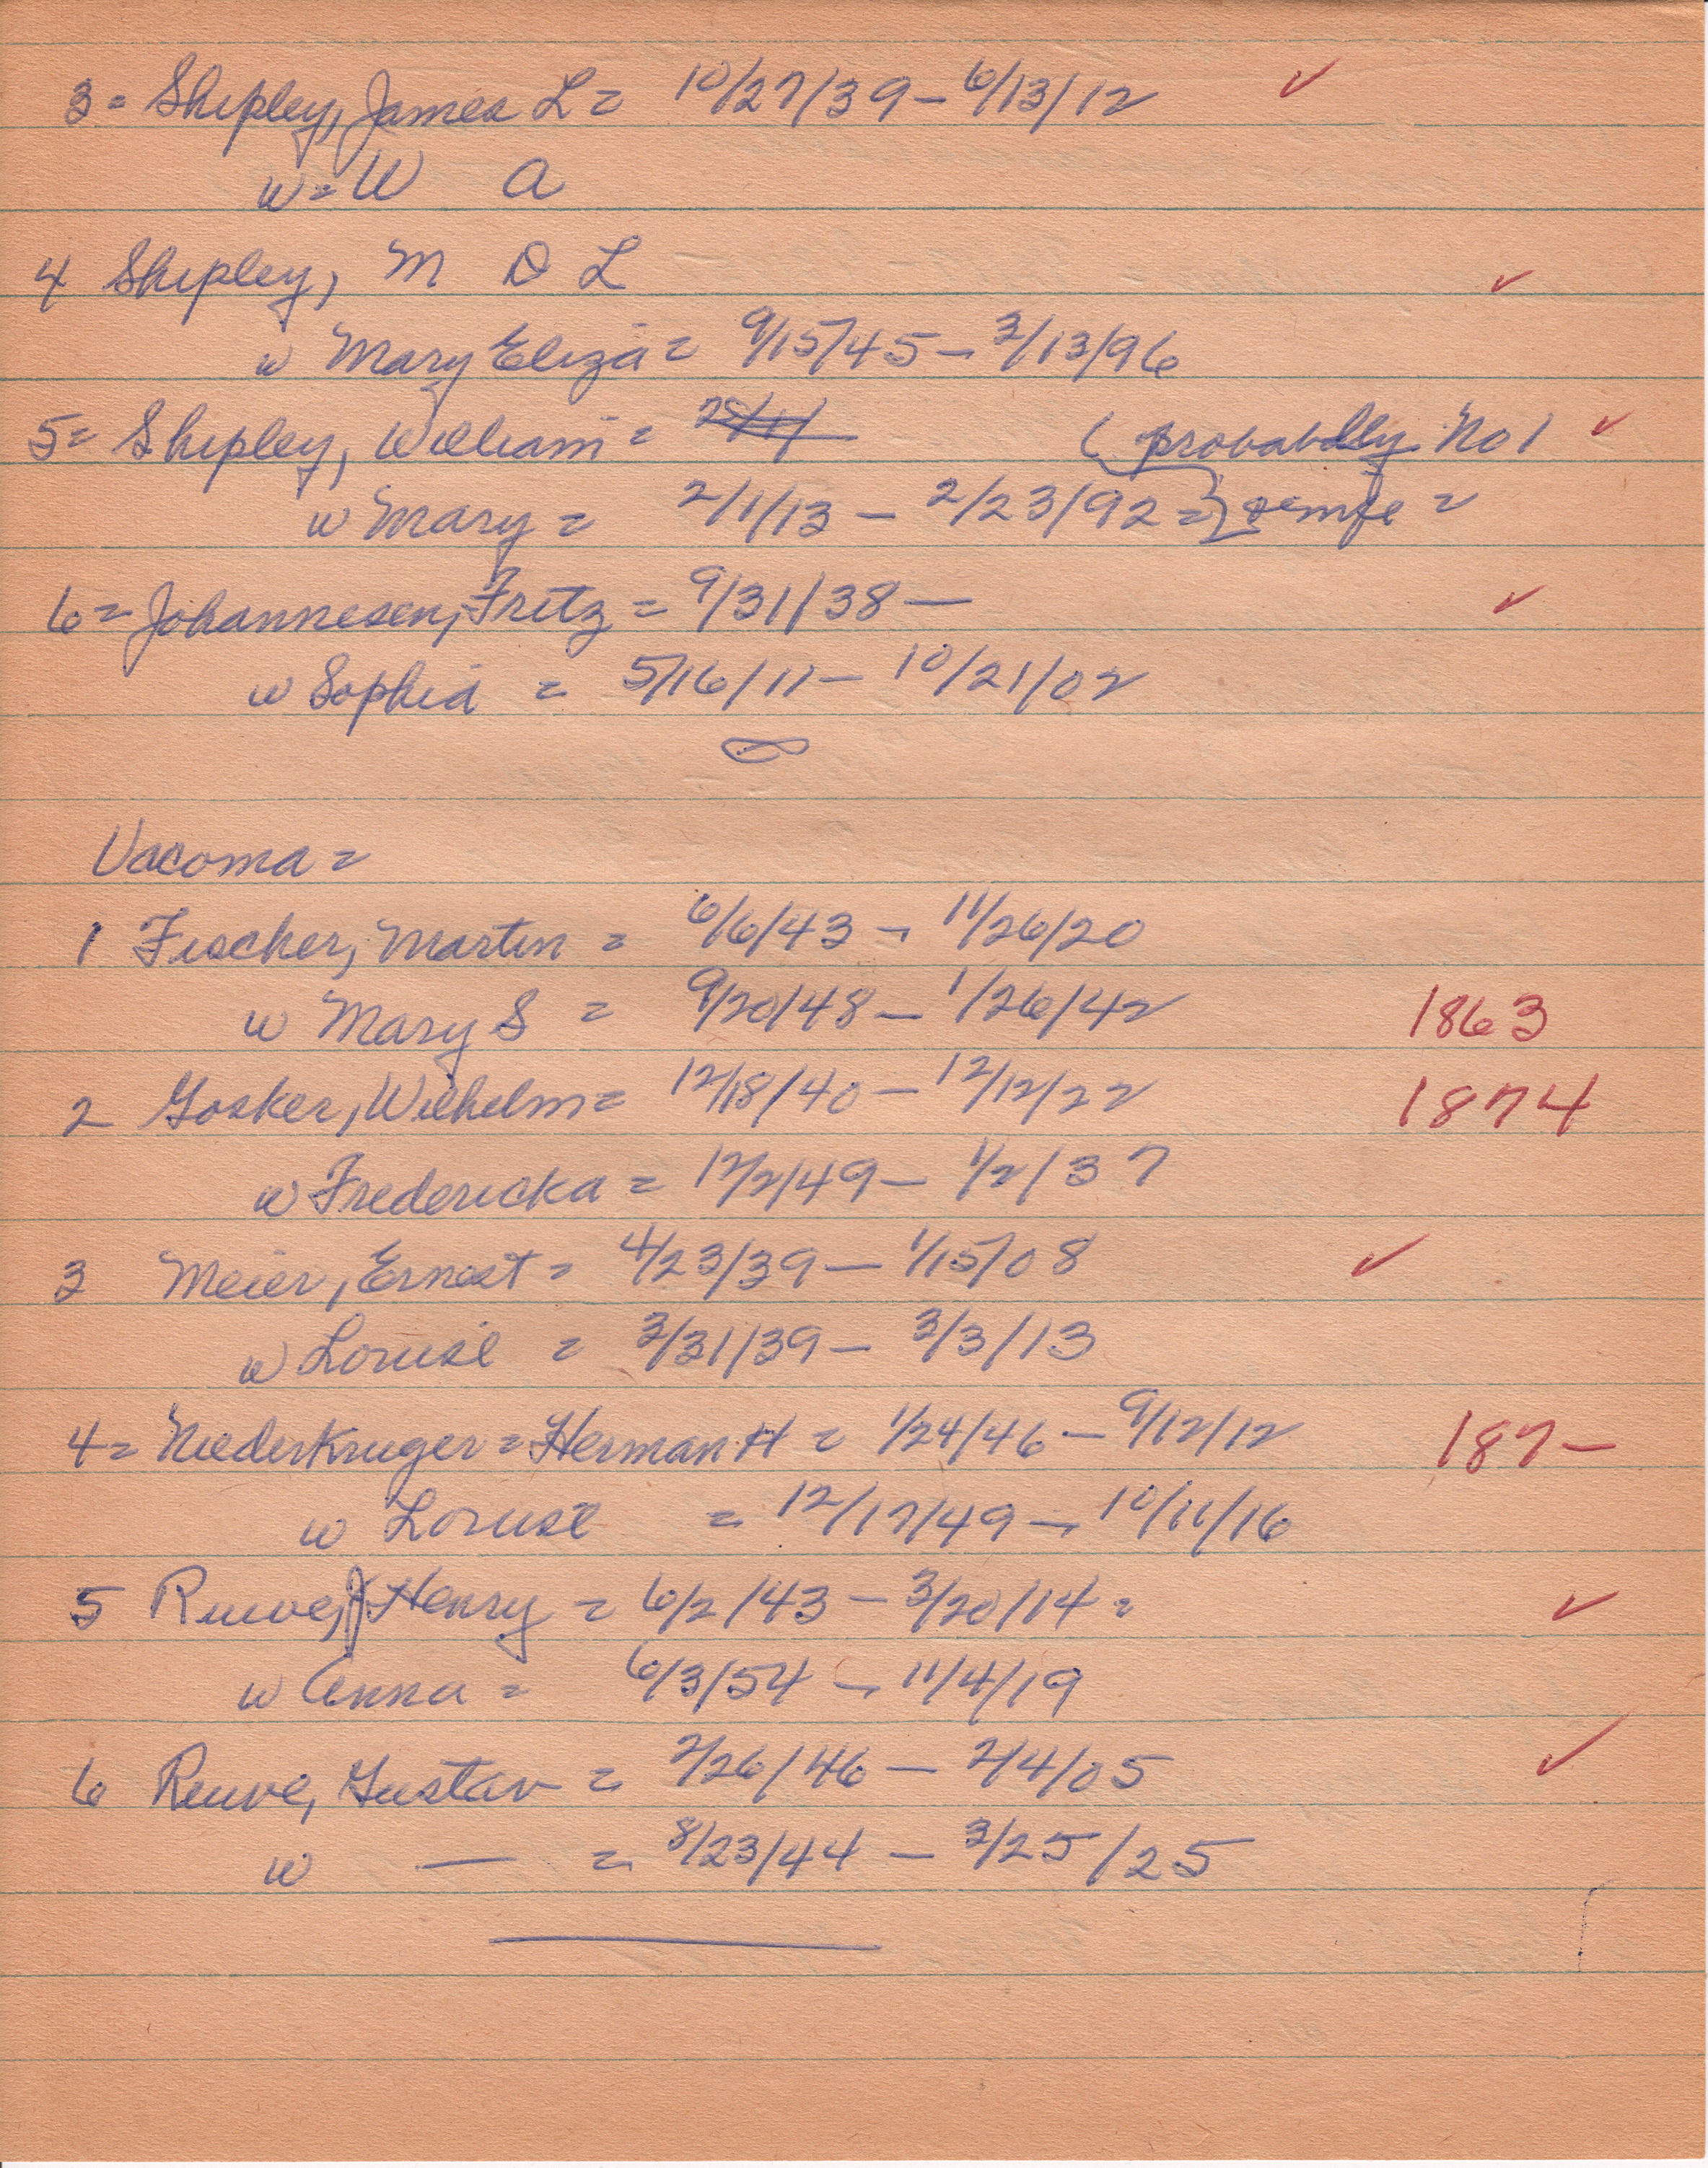 3 = Shipley, James L = 10/27/39 – 6/13/12 ✓
w = W A
4 Shipley, M D L ✓
w Mary Eliza = 9/15/45 – 3/13/96
5 = Shipley, William = (probabdly No 1 ✓
w Mary = 2/1/13 – 2/23/92 =
6 = Johannesen, Fritz = 9/31/38 — ✓
w Sophia = 5/16/11 – 10/21/02
Vacoma =
1 Fischer, Martin = 6/6/43 – 11/26/20
w Mary S = 9/20/48 – 1/26/42 1863
2 Gosker, Wilhelm = 12/18/40 – 12/12/22 1874
w Fredericka = 12/2/49 – 1/2/37
3 Meier, Ernest = 4/23/39 – 1/15/08 ✓
w Louise = 3/31/39 – 3/3/13
4 = Niederkruger = Herman H = 1/24/46 – 9/12/12 187–
w Louise = 12/17/49 – 10/11/16
5 Ruwe, J Henry = 6/2/43 – 3/20/14 = ✓
w Anna = 6/3/54 – 11/4/19
6 Ruwe, Gustav = 2/26/46 – 2/4/05 ✓
w — = 8/23/44 – 3/25/25